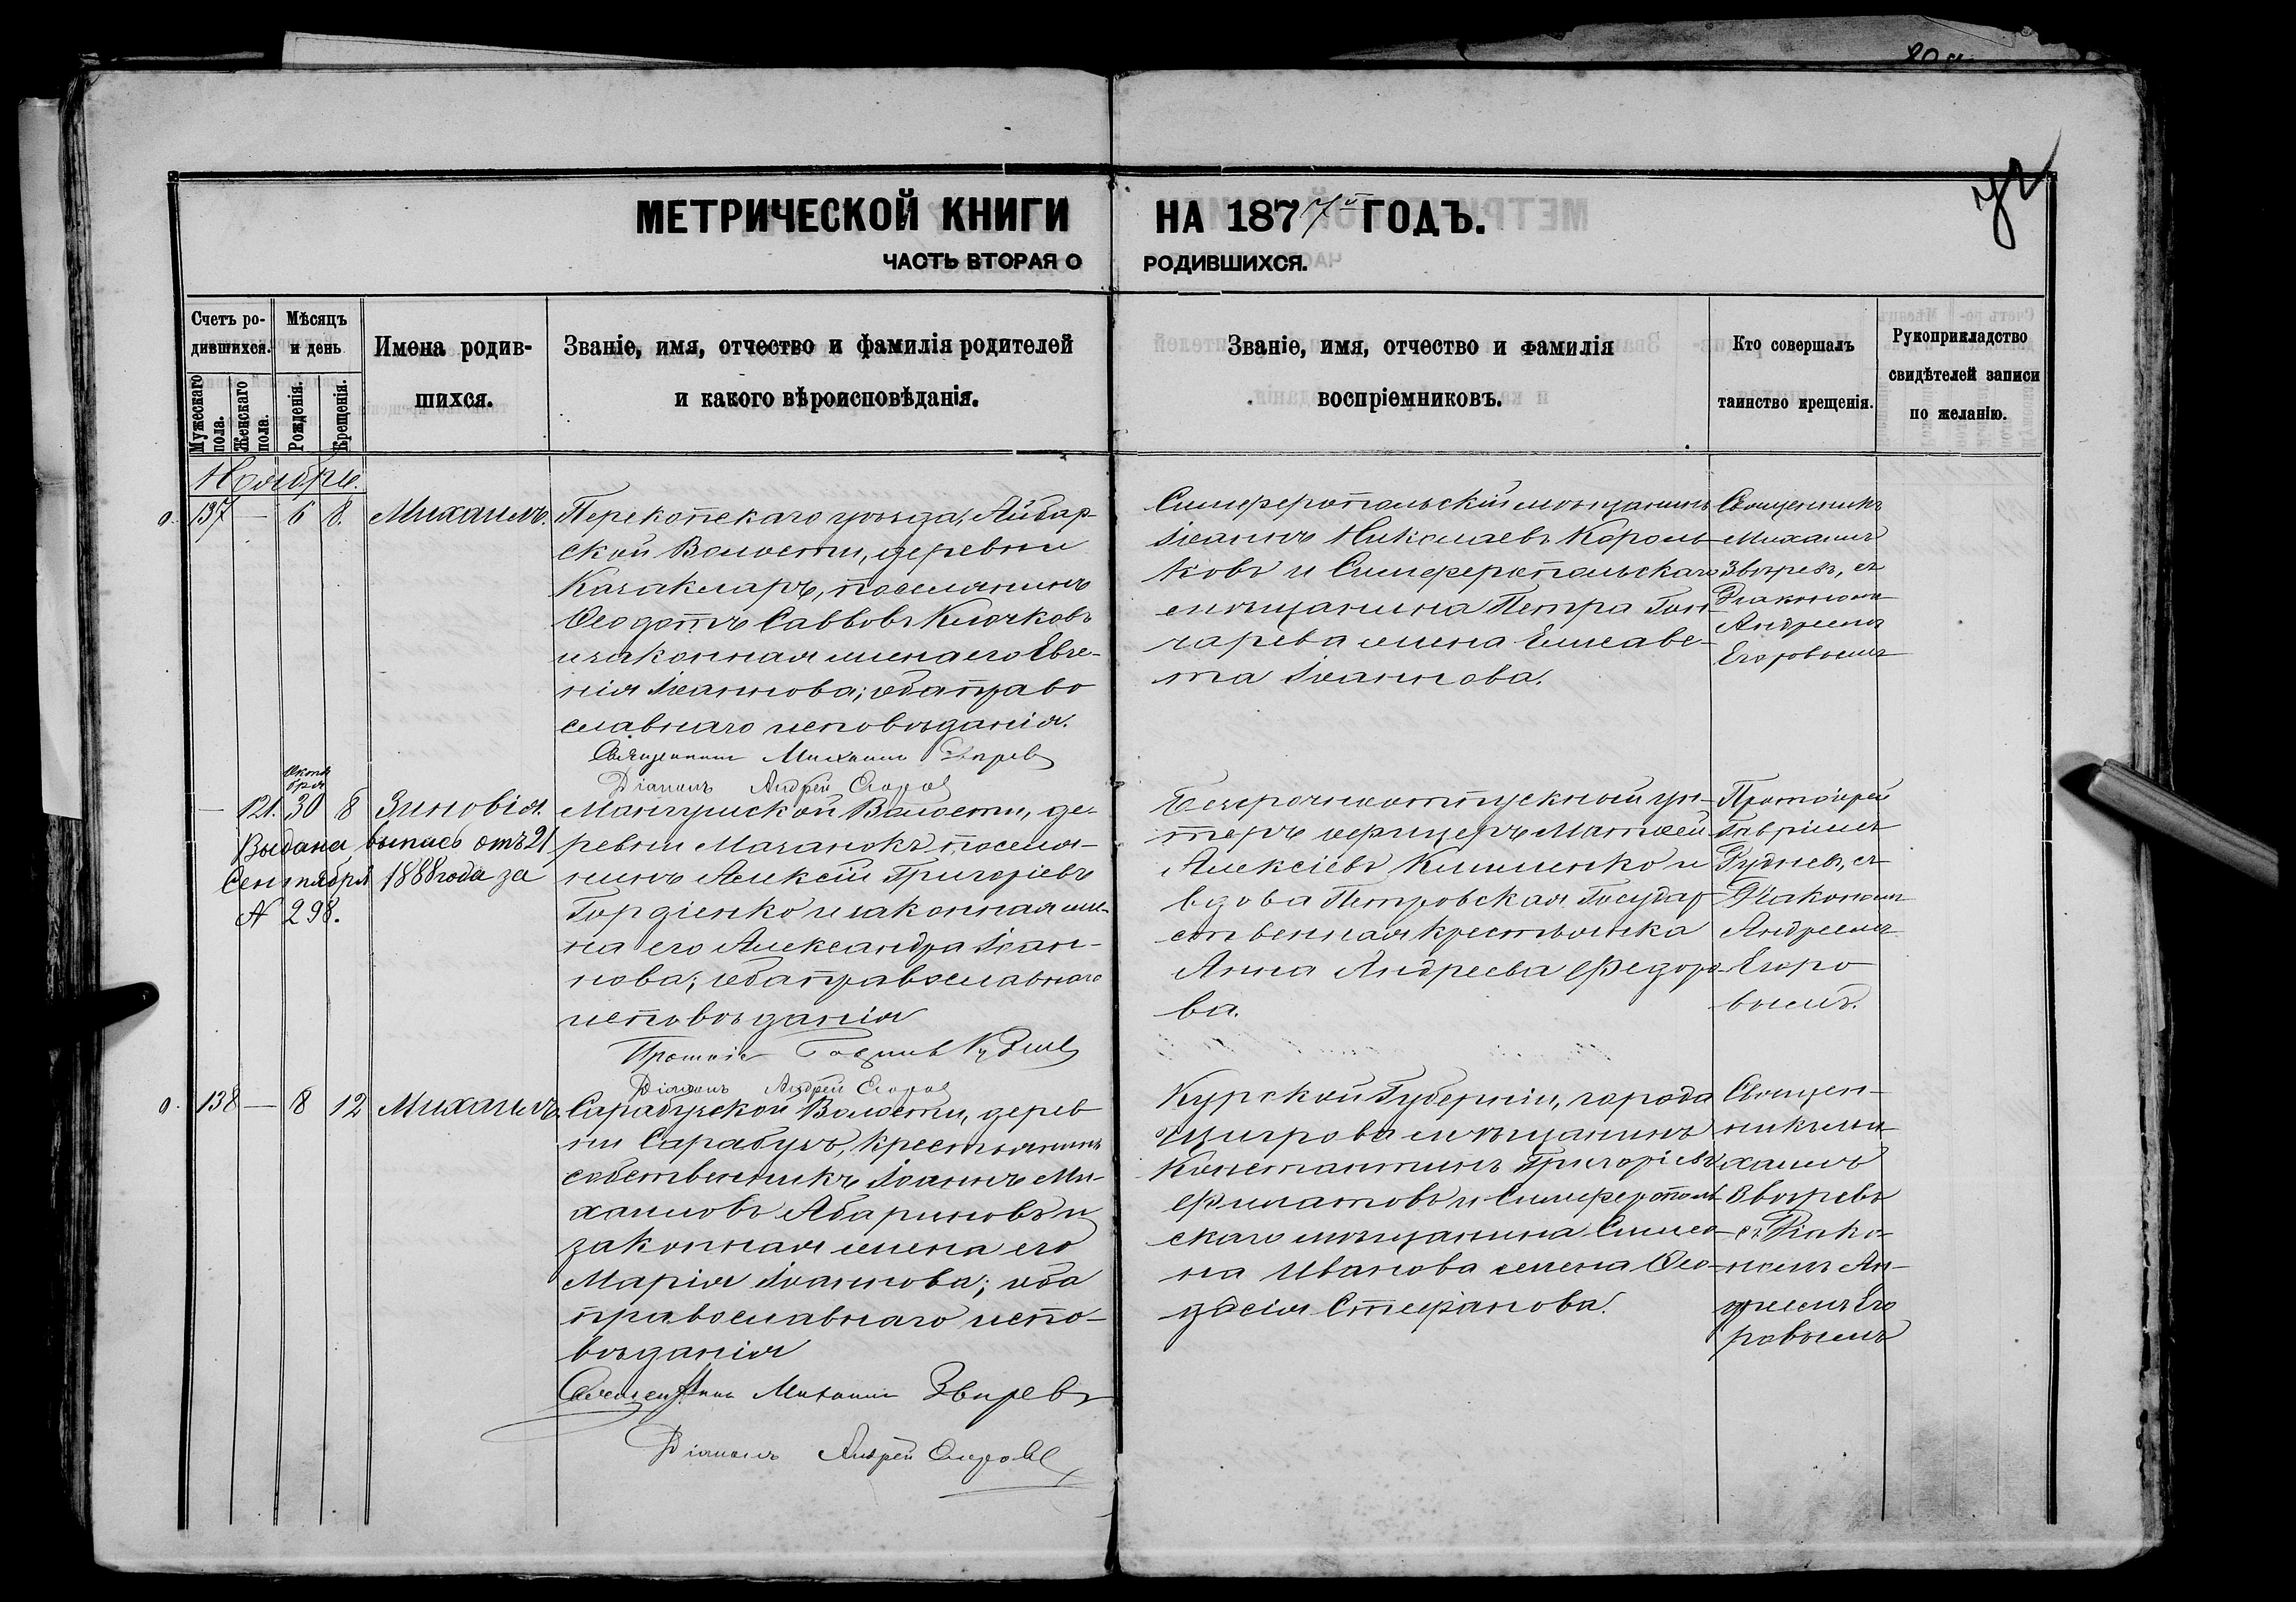 МЕТРИЧЕСКОЙ КНИГИ НА 1877й ГОДЪ.
ЧАСТЬ ВТОРАЯ О РОДИВШИХСЯ.
Счетъ ро-
дившихся.
Мужескаго
пола.
Женскаго
пола.
Мѣсяцъ
и день
Рожденія.
Крещенія.
Имена родив-
шихся.
Званіе, имя, отчество и фамилія родителей
и какого вѣроисповѣданія.
Званіе, имя, отчество и фамилія
воспріемниковъ.
Кто совершалъ
таинство крещенія.
Рукоприкладство
свидѣтелей записи
по желанію.
Ноябрь.
137 — 6 8. Михаилъ.
Перекопскаго уѣзда, Айбар-
ской Волости, деревни
Качакларъ, поселянинъ
Ѳеодотъ Саввовъ Клочковъ
и законная жена его Евге-
нія Іоаннова; оба право
славнаго исповѣданія.
Священникъ Михаилъ Звѣревъ
Діаконъ Андрей Егоровъ
Симферопольскій мѣщанинъ
Іоаннъ Николаевъ Король-
ковъ и Симферопольскаго
мѣщанина Петра Гон-
чарева жена Елисаве-
та Іоаннова.
Священникъ
Михаилъ
Звѣревъ, съ
Діакономъ
Андреемъ
Егоровымъ
— 121. Октя
бря 30 8 Зиновія.
Выдана выпись отъ 21
Сентября 1888 года за
№ 298.
Мангушской Волости, де-
ревни Мачанокъ поселя-
нинъ Алексій Григоріевъ
Гордіенко и законная же-
на его Александра Іоан-
нова; оба православнаго
исповѣданія
Діаконъ Андрей Егоровъ
Безсрочноотпускной ун-
теръ офицеръ Матѳей
Алексіевъ Клименко и
вдова Петровская Государ
ственная крестьянка
Анна Андреева Федоро-
ва.
Протоіерей
Гавріилъ
Рудневъ, съ
Діакономъ
Андреемъ
Егоро
вымъ.
138 — 8 12 Михаилъ.
Сарабузской Волости, дерев
ни Сарабузъ, крестьянинъ
собственникъ Іоаннъ Ми-
хаиловъ Абариновъ и
законная жена его
Марія Іоаннова; оба
православнаго испо-
вѣданія
Священникъ Михаилъ Звѣревъ
Діаконъ Андрей Егоровъ
Курской Губерніи, города
Щигрова мѣщанинъ
Константинъ Григоріевъ
Филатовъ и Симферополь
скаго мѣщанина Симео-
на Иванова жена Ѳео-
досія Стефанова.
Священ-
никъ Ми-
хаилъ
Звѣревъ
съ Діако-
номъ Ан-
дреемъ Его
ровымъ